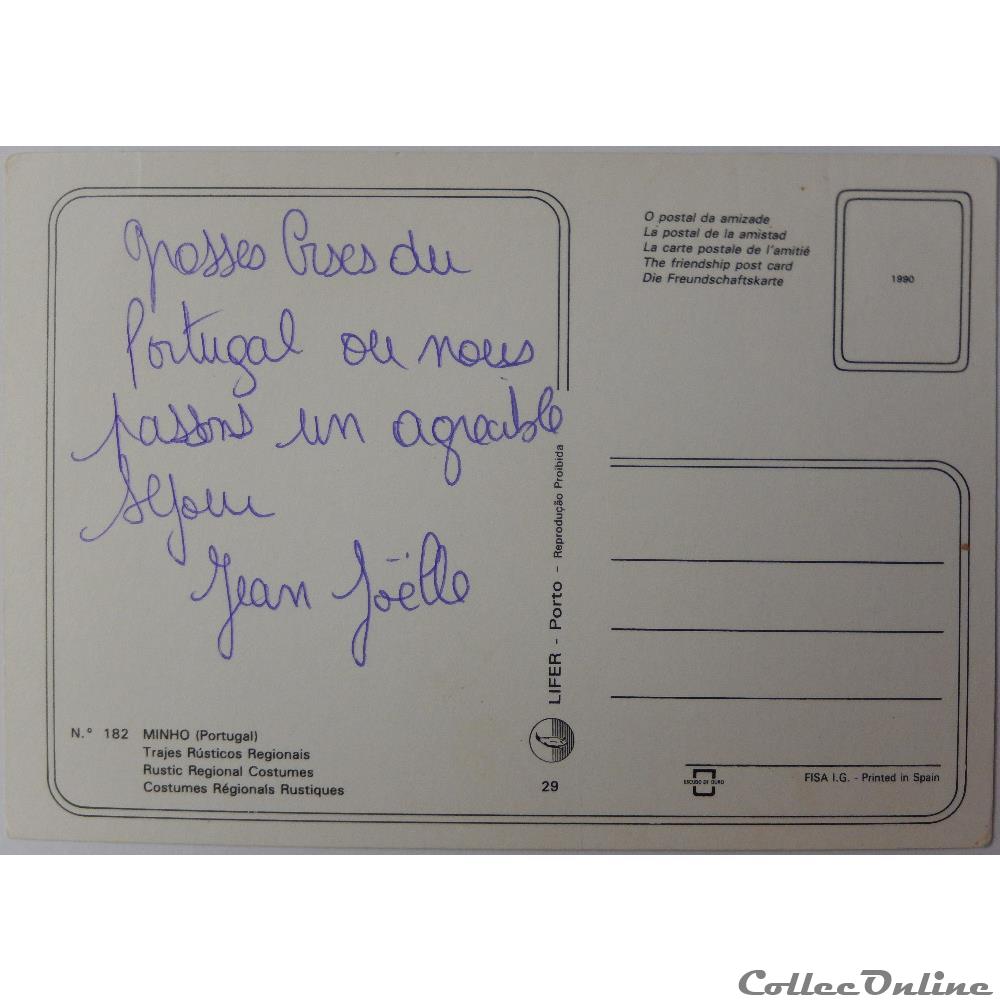 grosses Bises du
Portugal ou nous
passons un agreable
sejour
Jean Joëlle
N.° 182 MINHO (Portugal)
Trajes Rústicos Regionais
Rustic Regional Costumes
Costumes Régionals Rustiques
LIFER - Porto - Reprodução Proibida
29
O postal da amizade
La postal de la amistad
La carte postale de l'amitié
The friendship post card
Die Freundschaftskarte
1990
ESCUDO DE OURO
FISA I.G. - Printed in Spain
CollecOnline